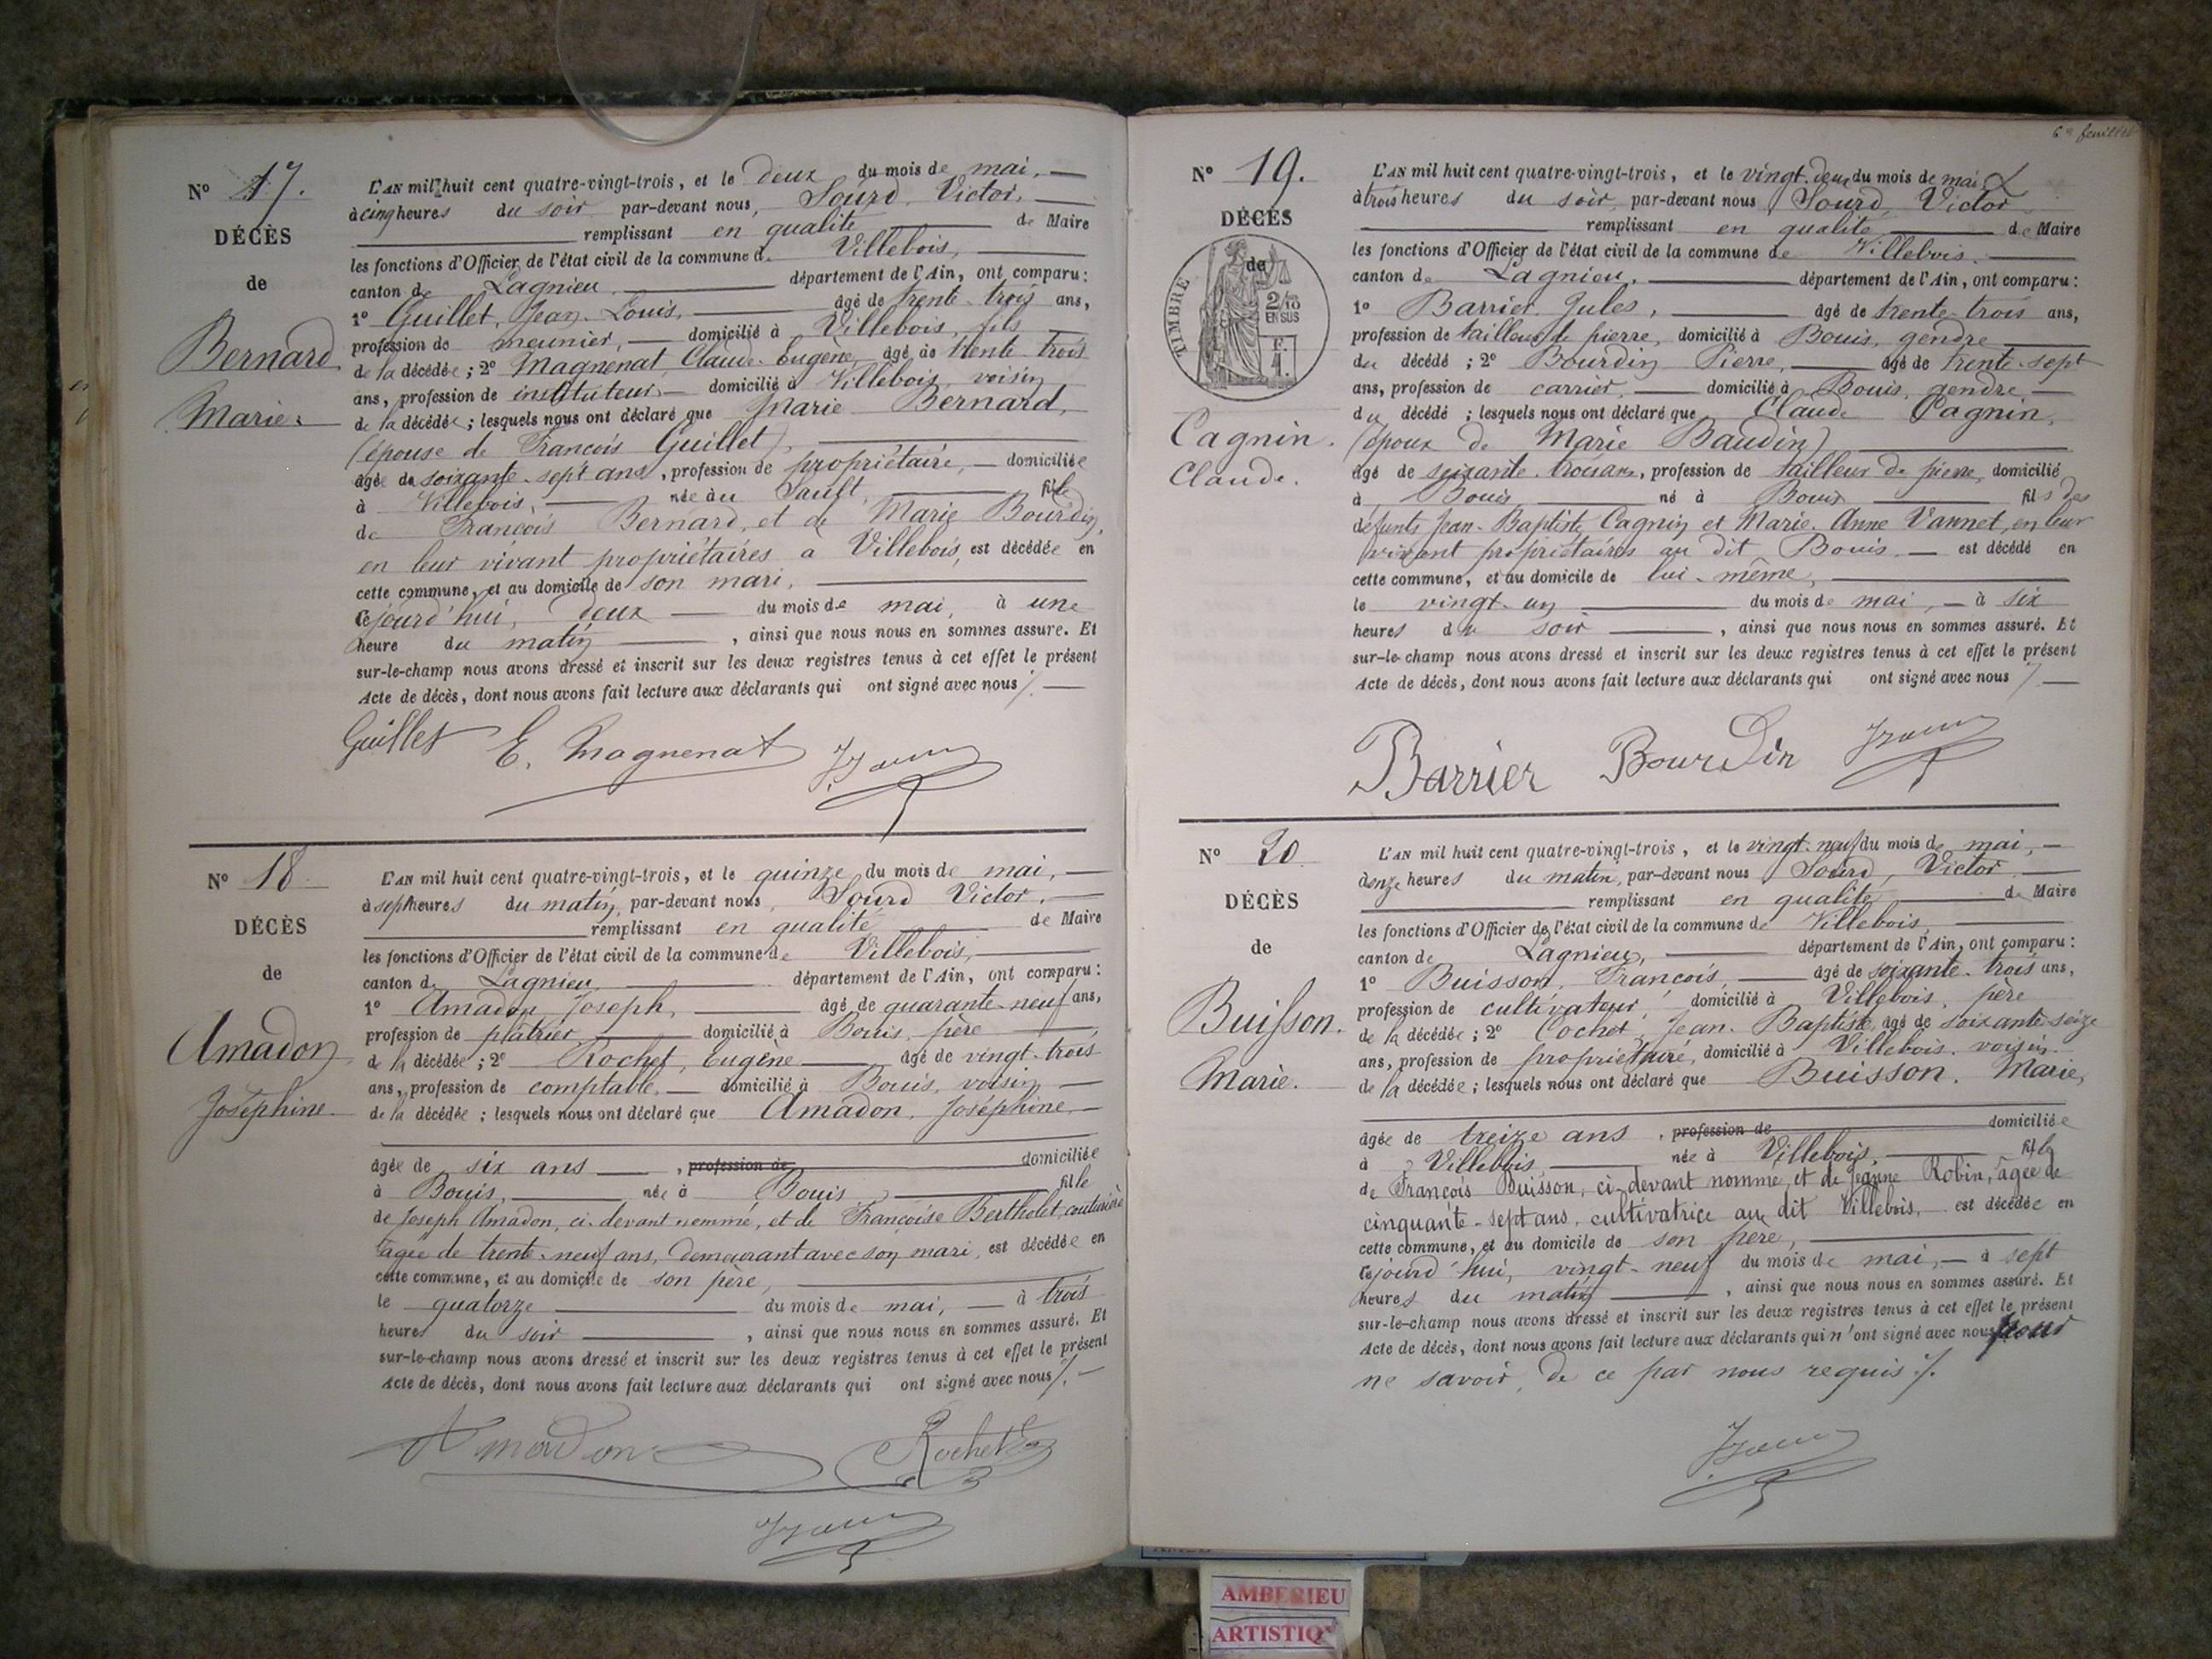 Nº 17.
DÉCÈS
de
Bernard
Marie.
L'AN mil huit cent quatre-vingt-trois, et le deux du mois de mai,
à cinq heures du soir par-devant nous, Sourd, Victor,
remplissant en qualité de Maire
les fonctions d'Officier de l'état civil de la commune de Villebois,
canton de Lagnieu département de l'Ain, ont comparu :
1º Guillet, Jean-Louis, âgé de trente-trois ans,
profession de meunier, domicilié à Villebois, fils
de la décédée ; 2º Magnenat, Claude-Eugène, âgé de trente-trois
ans, profession de instituteur, domicilié à Villebois, voisin
de la décédée ; lesquels nous ont déclaré que Marie Bernard,
(épouse de François Guillet),
âgée de soixante-sept ans, profession de propriétaire, domiciliée
à Villebois, née au Sault, fille
de François Bernard, et de Marie Bourdin,
en leur vivant propriétaires à Villebois, est décédée en
cette commune, et au domicile de son mari,
cejourd'hui, deux du mois de mai, à une
heure du matin, ainsi que nous nous en sommes assuré. Et
sur-le-champ nous avons dressé et inscrit sur les deux registres tenus à cet effet le présent
Acte de décès, dont nous avons fait lecture aux déclarants qui ont signé avec nous ./.
Guillet E. Magnenat
Nº 18
DÉCÈS
de
Amadon
Joséphine
L'AN mil huit cent quatre-vingt-trois, et le quinze du mois de mai,
à sept heures du matin, par-devant nous, Sourd Victor,
remplissant en qualité de Maire
les fonctions d'Officier de l'état civil de la commune de Villebois,
canton de Lagnieu département de l'Ain, ont comparu :
1º Amadon, Joseph, âgé de quarante-neuf ans,
profession de plâtrier domicilié à Bouis, père
de la décédée ; 2º Rochet, Eugène âgé de vingt-trois
ans, profession de comptable, domicilié à Bouis, voisin
de la décédée ; lesquels nous ont déclaré que Amadon, Joséphine,
âgée de six ans, profession de domiciliée
à Bouis, née à Bouis fille
de Joseph Amadon, ci-devant nommé, et de Françoise Bertholet, couturière
âgée de trente-neuf ans, demeurant avec son mari, est décédée en
cette commune, et au domicile de son père,
le quatorze du mois de mai, à trois
heures du soir, ainsi que nous nous en sommes assuré. Et
sur-le-champ nous avons dressé et inscrit sur les deux registres tenus à cet effet le présent
Acte de décès, dont nous avons fait lecture aux déclarants qui ont signé avec nous ./.
Amadon Rochet
6e feuillet
Nº 19.
DÉCÈS
de
TIMBRE
2/10
EN SUS
F.
1.
Cagnin.
Claude.
L'AN mil huit cent quatre-vingt-trois, et le vingt-deux du mois de mai
à trois heures du soir, par-devant nous, Sourd, Victor
remplissant en qualité de Maire
les fonctions d'Officier de l'état civil de la commune de Villebois.
canton de Lagnieu, département de l'Ain, ont comparu :
1º Barrier, Jules, âgé de trente-trois ans,
profession de tailleur de pierre, domicilié à Bouis, gendre
du décédé ; 2º Bourdin Pierre, âgé de trente-sept
ans, profession de carrier, domicilié à Bouis, gendre
du décédé ; lesquels nous ont déclaré que Claude Cagnin,
(époux de Marie Baudin)
âgé de soixante-trois ans, profession de tailleur de pierre, domicilié
à Bouis né à Bouis fils des
défunts Jean-Baptiste Cagnin et Marie-Anne Vannet, en leur
vivant propriétaires au dit Bouis. est décédé en
cette commune, et au domicile de lui-même,
le vingt-un du mois de mai, à six
heures du soir, ainsi que nous nous en sommes assuré. Et
sur-le-champ nous avons dressé et inscrit sur les deux registres tenus à cet effet le présent
Acte de décès, dont nous avons fait lecture aux déclarants qui ont signé avec nous ./.
Barrier Bourdin
Nº 20
DÉCÈS
de
Buisson.
Marie.
L'AN mil huit cent quatre-vingt-trois, et le vingt-neuf du mois de mai,
à onze heures du matin, par-devant nous Sourd, Victor
remplissant en qualité de Maire
les fonctions d'Officier de l'état civil de la commune de Villebois,
canton de Lagnieu, département de l'Ain, ont comparu :
1º Buisson, François, âgé de soixante-trois ans,
profession de cultivateur, domicilié à Villebois, père
de la décédée ; 2º Cochet, Jean-Baptiste, âgé de soixante-seize
ans, profession de propriétaire, domicilié à Villebois, voisin
de la décédée ; lesquels nous ont déclaré que Buisson, Marie,
âgée de treize ans, profession de domiciliée
à Villebois, née à Villebois, fille
de François Buisson, ci-devant nommé, et de Jeanne Robin, âgée de
cinquante-sept ans, cultivatrice au dit Villebois, est décédée en
cette commune, et au domicile de son père,
cejourd'hui, vingt-neuf du mois de mai, à sept
heures du matin, ainsi que nous nous en sommes assuré. Et
sur-le-champ nous avons dressé et inscrit sur les deux registres tenus à cet effet le présent
Acte de décès, dont nous avons fait lecture aux déclarants qui n'ont signé avec nous pour
ne savoir, de ce par nous requis ./.
AMBERIEU
ARTISTIQ